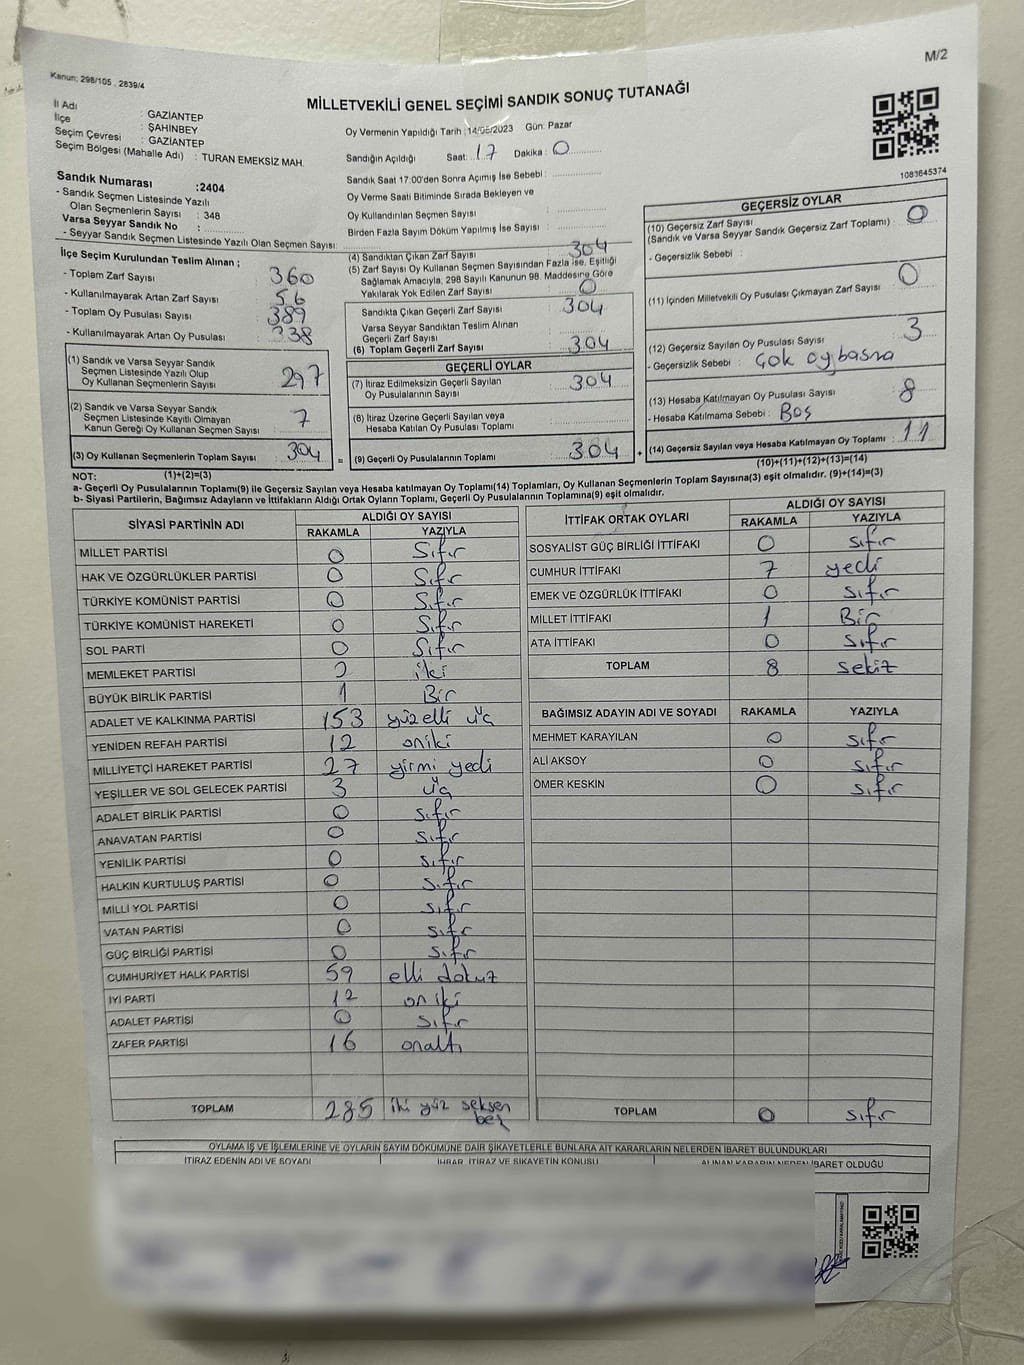 M/2
Kanun; 298/105 , 2839/4
MİLLETVEKİLİ GENEL SEÇİMİ SANDIK SONUÇ TUTANAĞI
İl Adı : GAZİANTEP
İlçe : ŞAHİNBEY
Seçim Çevresi : GAZİANTEP
Seçim Bölgesi (Mahalle Adı) : TURAN EMEKSİZ MAH.
Sandık Numarası :2404
- Sandık Seçmen Listesinde Yazılı
Olan Seçmenlerin Sayısı : 348
Varsa Seyyar Sandık No :
- Seyyar Sandık Seçmen Listesinde Yazılı Olan Seçmen Sayısı:
Oy Vermenin Yapıldığı Tarih :14/05/2023 Gün: Pazar
Sandığın Açıldığı Saat: 17 Dakika : 0
Sandık Saat 17:00'den Sonra Açılmış İse Sebebi :
Oy Verme Saati Bitiminde Sırada Bekleyen ve
Oy Kullandırılan Seçmen Sayısı :
Birden Fazla Sayım Döküm Yapılmış İse Sayısı :
1083645374
İlçe Seçim Kurulundan Teslim Alınan ;
- Toplam Zarf Sayısı : 360
- Kullanılmayarak Artan Zarf Sayısı : 56
- Toplam Oy Pusulası Sayısı : 389
- Kullanılmayarak Artan Oy Pusulası :
(1) Sandık ve Varsa Seyyar Sandık
Seçmen Listesinde Yazılı Olup
Oy Kullanan Seçmenlerin Sayısı : 297
(2) Sandık ve Varsa Seyyar Sandık
Seçmen Listesinde Kayıtlı Olmayan
Kanun Gereği Oy Kullanan Seçmen Sayısı : 7
(3) Oy Kullanan Seçmenlerin Toplam Sayısı : 304
(1)+(2)=(3)
(4) Sandıktan Çıkan Zarf Sayısı : 304
(5) Zarf Sayısı Oy Kullanan Seçmen Sayısından Fazla ise, Eşitliği
Sağlamak Amacıyla, 298 Sayılı Kanunun 98. Maddesine Göre
Yakılarak Yok Edilen Zarf Sayısı : 0
Sandıkta Çıkan Geçerli Zarf Sayısı : 304
Varsa Seyyar Sandıktan Teslim Alınan
Geçerli Zarf Sayısı :
(6) Toplam Geçerli Zarf Sayısı : 304
GEÇERLİ OYLAR
(7) İtiraz Edilmeksizin Geçerli Sayılan
Oy Pusulasının Sayısı : 304
(8) İtiraz Üzerine Geçerli Sayılan veya
Hesaba Katılan Oy Pusulası Toplamı :
= (9) Geçerli Oy Pusulalarının Toplamı : 304 +
GEÇERSİZ OYLAR
(10) Geçersiz Zarf Sayısı
(Sandık ve Varsa Seyyar Sandık Geçersiz Zarf Toplamı) : 0
- Geçersizlik Sebebi :
(11) İçinden Milletvekili Oy Pusulası Çıkmayan Zarf Sayısı : 0
(12) Geçersiz Sayılan Oy Pusulası Sayısı : 3
- Geçersizlik Sebebi : Çok oy basma
(13) Hesaba Katılmayan Oy Pusulası Sayısı : 8
- Hesaba Katılmama Sebebi : Boş
(14) Geçersiz Sayılan veya Hesaba Katılmayan Oy Toplamı : 11
(10)+(11)+(12)+(13)=(14)
NOT:
a- Geçerli Oy Pusulalarının Toplamı(9) ile Geçersiz Sayılan veya Hesaba katılmayan Oy Toplamı(14) Toplamları, Oy Kullanan Seçmenlerin Toplam Sayısına(3) eşit olmalıdır. (9)+(14)=(3)
b- Siyasi Partilerin, Bağımsız Adayların ve İttifakların Aldığı Ortak Oyların Toplamı, Geçerli Oy Pusulalarının Toplamına(9) eşit olmalıdır.
SİYASİ PARTİNİN ADI ALDIĞI OY SAYISI
RAKAMLA YAZIYLA
MİLLET PARTİSİ 0 Sıfır
HAK VE ÖZGÜRLÜKLER PARTİSİ 0 Sıfır
TÜRKİYE KOMÜNİST PARTİSİ 0 Sıfır
TÜRKİYE KOMÜNİST HAREKETİ 0 Sıfır
SOL PARTİ 0 Sıfır
MEMLEKET PARTİSİ 2 iki
BÜYÜK BİRLİK PARTİSİ 1 Bir
ADALET VE KALKINMA PARTİSİ 153 yüzelli üç
YENİDEN REFAH PARTİSİ 12 oniki
MİLLİYETÇİ HAREKET PARTİSİ 27 yirmi yedi
YEŞİLLER VE SOL GELECEK PARTİSİ 3 üç
ADALET BİRLİK PARTİSİ 0 sıfır
ANAVATAN PARTİSİ 0 sıfır
YENİLİK PARTİSİ 0 sıfır
HALKIN KURTULUŞ PARTİSİ 0 sıfır
MİLLİ YOL PARTİSİ 0 sıfır
VATAN PARTİSİ 0 sıfır
GÜÇ BİRLİĞİ PARTİSİ 0 sıfır
CUMHURİYET HALK PARTİSİ 59 elli dokuz
İYİ PARTİ 12 on iki
ADALET PARTİSİ 0 sıfır
ZAFER PARTİSİ 16 onaltı
TOPLAM 285 iki yüz seksen
beş
İTTİFAK ORTAK OYLARI ALDIĞI OY SAYISI
RAKAMLA YAZIYLA
SOSYALİST GÜÇ BİRLİĞİ İTTİFAKI 0 sıfır
CUMHUR İTTİFAKI 7 yedi
EMEK VE ÖZGÜRLÜK İTTİFAKI 0 sıfır
MİLLET İTTİFAKI 1 Bir
ATA İTTİFAKI 0 sıfır
TOPLAM 8 sekiz
BAĞIMSIZ ADAYIN ADI VE SOYADI RAKAMLA YAZIYLA
MEHMET KARAYILAN 0 sıfır
ALİ AKSOY 0 sıfır
ÖMER KESKİN 0 sıfır
TOPLAM 0 sıfır
OYLAMA İŞ VE İŞLEMLERİNE VE OYLARIN SAYIM DÖKÜMÜNE DAİR ŞİKAYETLERLE BUNLARA AİT KARARLARIN NELERDEN İBARET BULUNDUKLARI
İTİRAZ EDENİN ADI VE SOYADI İHBAR, İTİRAZ VE ŞİKAYETİN KONUSU ALINAN KARARIN NEDEN İBARET OLDUĞU